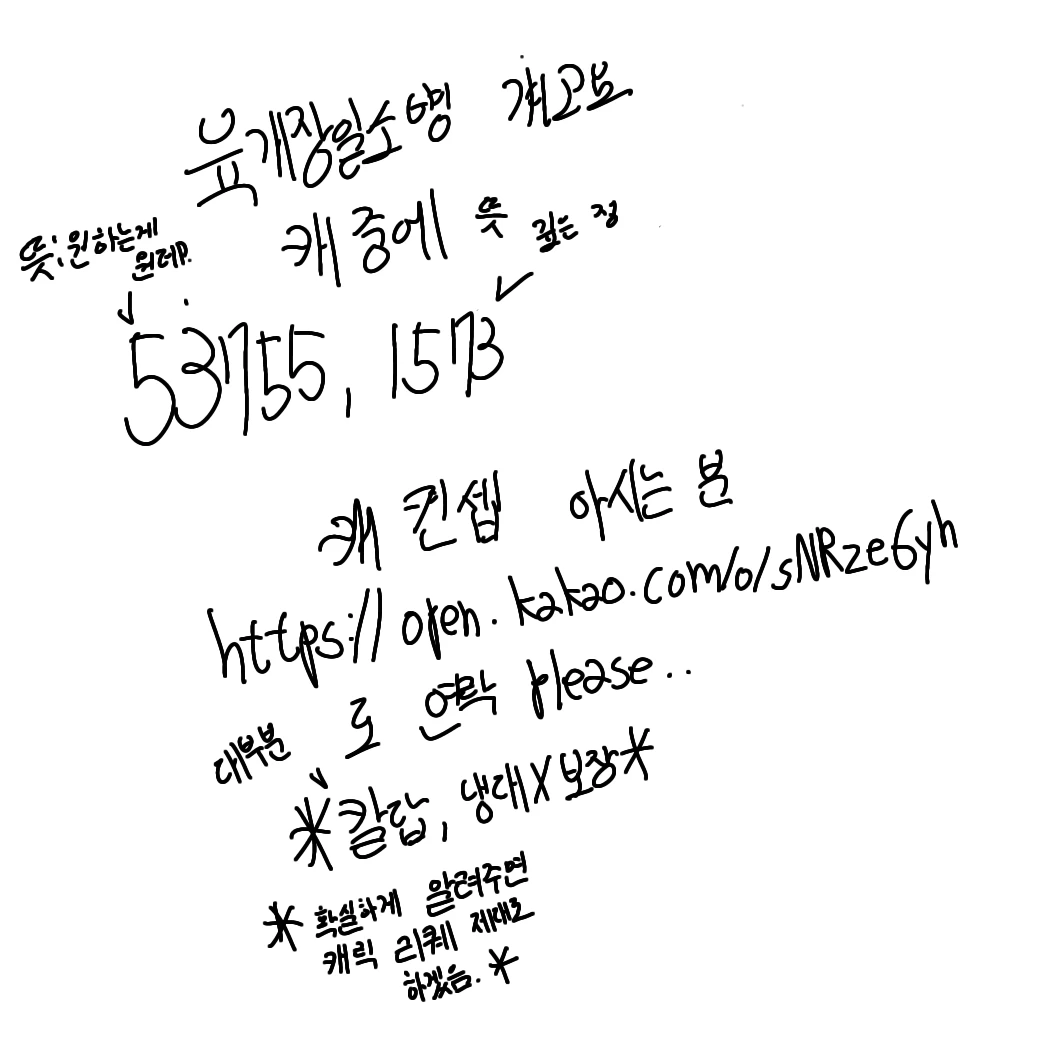 육개장일소행 겨고묘
캐 중에 뜻 깊은 정
뜻: 원하는게
뭔데?
53755, 1573
캐 컨셉 아시는 분
https://open.kakao.com/o/sNRze6yh
로 연락 please..
대부분
*칼답, 냉대X 보장*
* 확실하게 알려주면
캐릭 리퀘 제대로
하겠음. *